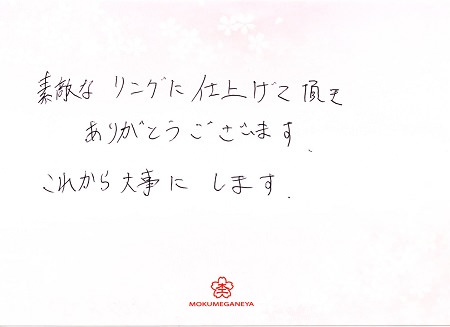 素敵な リングに 仕上げて 頂き
ありがとうございます.
これから 大事に します.
MOKUMEGANEYA